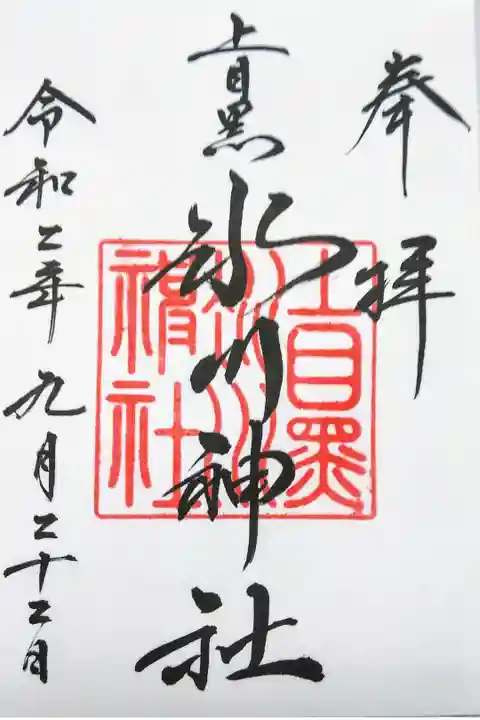 奉拝
上目黒
氷川神社
上目黒
氷川神社
令和二年九月二十二日